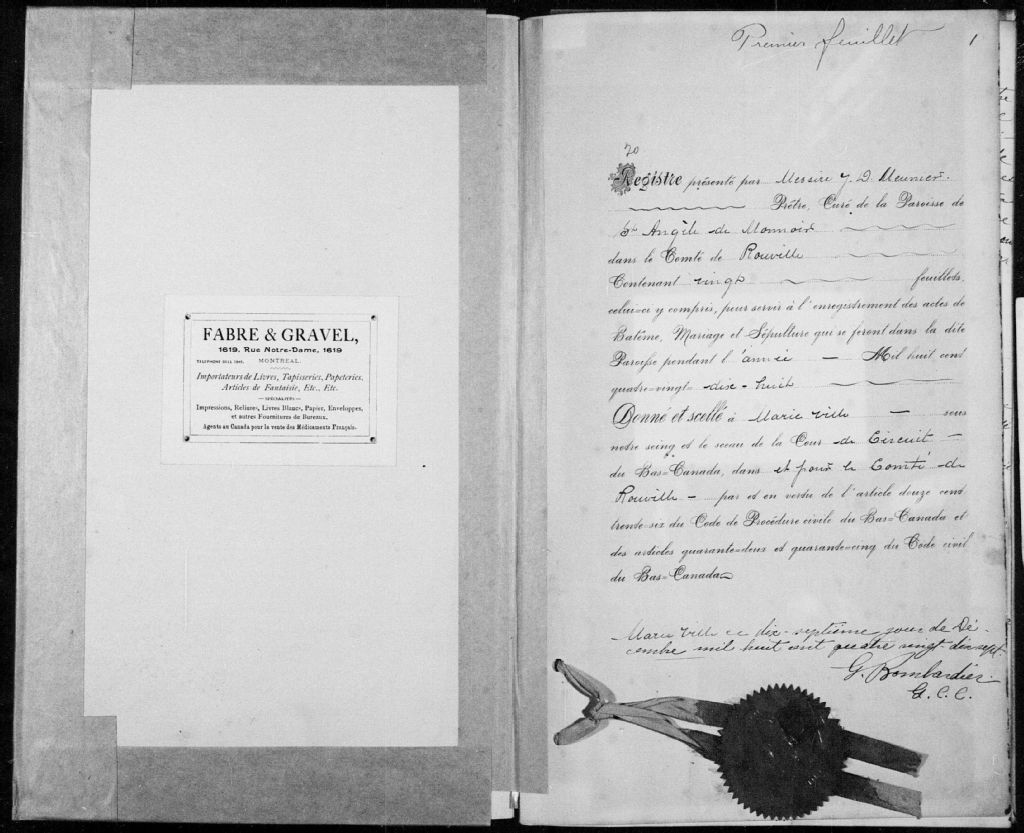 FABRE & GRAVEL,
1619, Rue Notre-Dame, 1619
MONTREAL.
Importateurs de Livres, Tapisseries, Papeteries,
Articles de Fantaisie, Etc., Etc.
—SPÉCIALITÉS—
Impressions, Reliures, Livres Blancs, Papier, Enveloppes,
et autres Fournitures de Bureaux.
Agents au Canada pour la vente des Médicaments Français.
Premier feuillet 1
20
Registre présenté par Messire J. D. Meunier.
Prêtre, Curé de la Paroisse de
Ste Angèle de Monnoir
dans le Comté de Rouville
Contenant vingt feuillets,
celui-ci y compris, pour servir à l'enregistrement des actes de
Batême, Mariage et Sépulture qui se feront dans la dite
Paroisse pendant l'année — Mil huit cent
quatre-vingt dix-huit
Donné et scellé à Marieville — sous
notre seing et le sceau de la Cour de Circuit —
du Bas-Canada, dans et pour le Comté de
Rouville — par et en vertu de l'article douze cent
trente-six du Code de Procédure civile du Bas-Canada et
des articles quarante-deux et quarante-cinq du Code civil
du Bas-Canada
Marieville ce dix-septième jour de Dé-
cembre mil huit cent quatre vingt-dix-sept.
G. Bombardier
G. C. C.